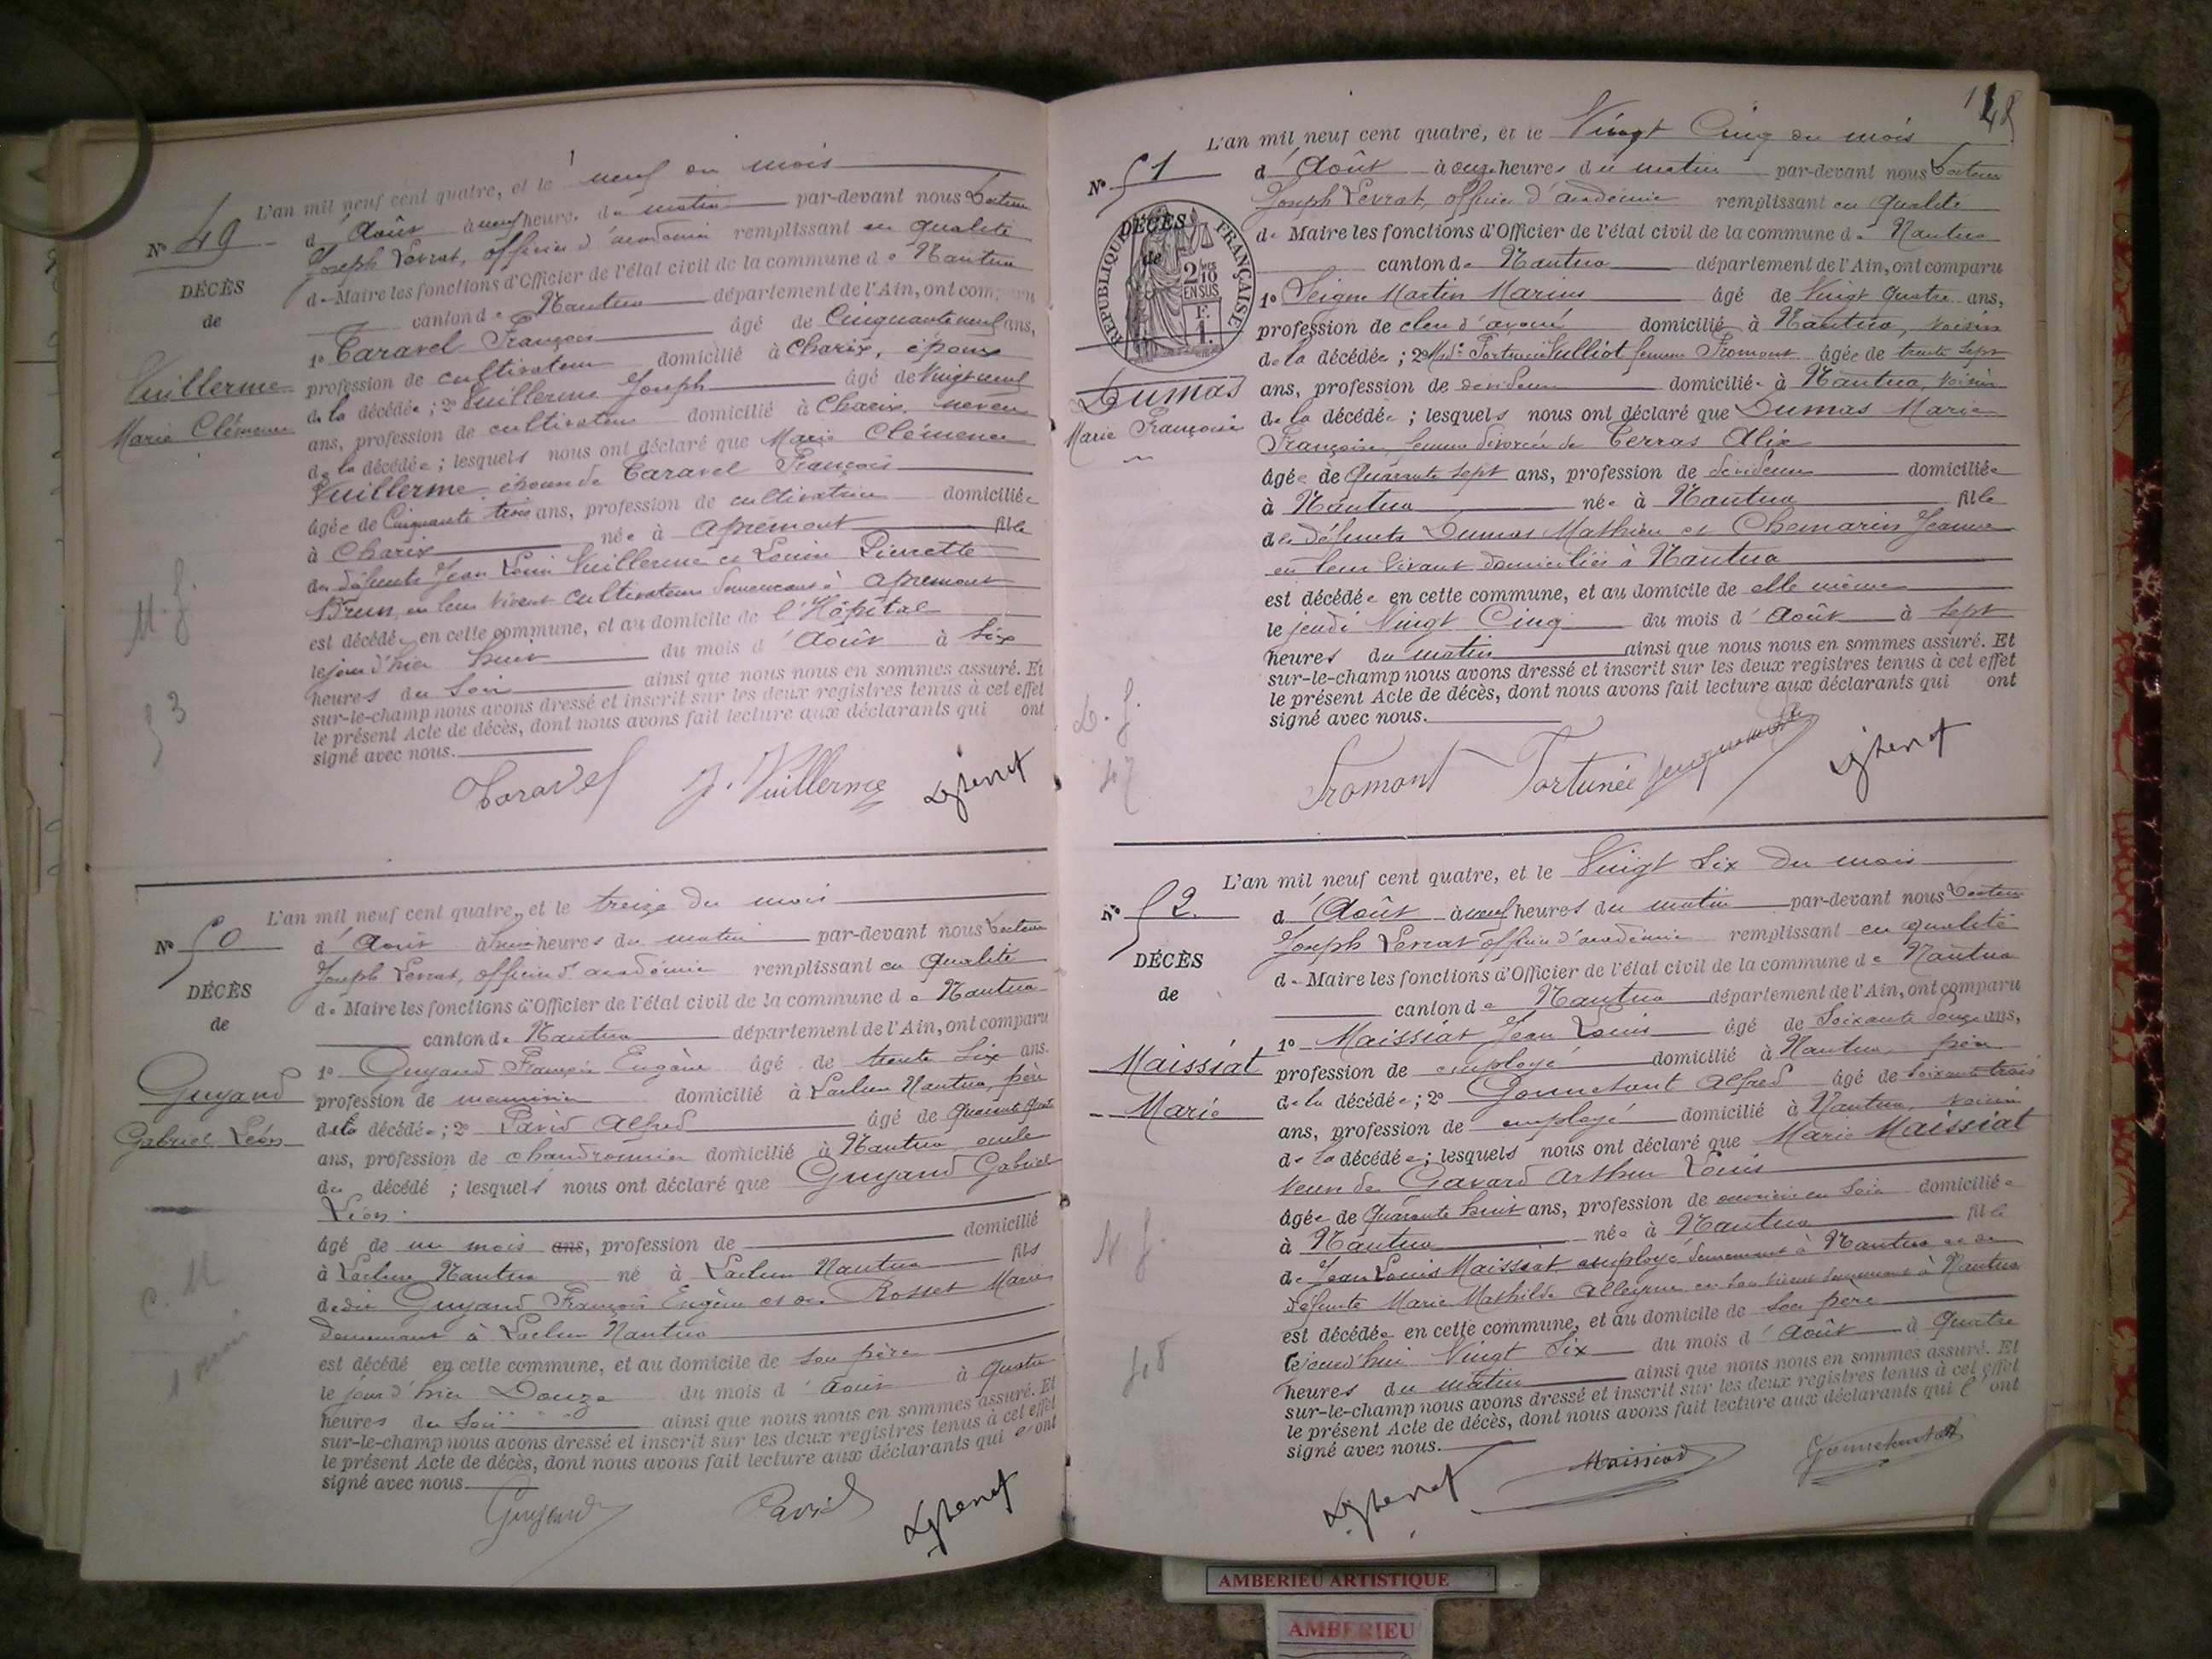 L'an mil neuf cent quatre, et le neuf du mois
N° 49
d'Août à neuf heures du matin par-devant nous Docteur
Joseph Levrat, officier d'académie remplissant en qualité
DÉCÈS
de Maire les fonctions d'Officier de l'état civil de la commune de Nantua
de
canton de Nantua département de l'Ain, ont comparu
1° Taravel François âgé de Cinquante neuf ans,
Vuillerme
profession de cultivateur domicilié à Charix, époux
de la décédée ; 2° Vuillerme Joseph âgé de Vingt neuf
Marie Clémence
ans, profession de cultivateur domicilié à Charix neveu
de la décédée ; lesquels nous ont déclaré que Marie Clémence
Vuillerme, épouse de Taravel François
âgée de Cinquante trois ans, profession de cultivatrice domiciliée
à Charix née à Apremont fille
des défunts Jean Louis Vuillerme et Louise Pierrette
Brun, en leur vivant cultivateurs demeurant à Apremont
M. f.
est décédée en cette commune, et au domicile de l'Hôpital
le jour d'hier huit du mois d'Août à Six
heures du Soir ainsi que nous nous en sommes assuré. Et
53
sur-le-champ nous avons dressé et inscrit sur les deux registres tenus à cet effet
le présent Acte de décès, dont nous avons fait lecture aux déclarants qui ont
signé avec nous.
Taravel J. Vuillerme
L'an mil neuf cent quatre, et le treize du mois
N° 50
d'Août à huit heures du matin par-devant nous Docteur
Joseph Levrat, officier d'académie remplissant en qualité
DÉCÈS
de Maire les fonctions d'Officier de l'état civil de la commune de Nantua
de
canton de Nantua département de l'Ain, ont comparu
1° Guyand François Eugène âgé de trente Six ans.
Guyand
profession de menuisier domicilié à Lacluse Nantua, père
Gabriel Léon
du décédé ; 2° Pavid Alfred âgé de quarante
ans, profession de chaudronnier domicilié à Nantua oncle
du décédé ; lesquels nous ont déclaré que Guyand Gabriel
Léon
âgé de un mois ans, profession de domicilié
à Lacluse Nantua né à Lacluse Nantua fils
de dit Guyand François Eugène et de Rosset Marie
demeurant à Lacluse Nantua
c. M
1 mois
est décédé en cette commune, et au domicile de son père
le jour d'hier Douze du mois d'Août à quatre
heures du Soir ainsi que nous nous en sommes assuré. Et
sur-le-champ nous avons dressé et inscrit sur les deux registres tenus à cet effet
le présent Acte de décès, dont nous avons fait lecture aux déclarants qui ont
signé avec nous.
Guyand Pavid
L'an mil neuf cent quatre, et le Vingt Cinq du mois
N° 51
d'Août à onze heures du matin par-devant nous Docteur
Joseph Levrat, officier d'académie remplissant en qualité
DÉCÈS
de
RÉPUBLIQUE FRANÇAISE
2/10 EN SUS
F. 1.
de Maire les fonctions d'Officier de l'état civil de la commune de Nantua
canton de Nantua département de l'Ain, ont comparu
1° Seigne Martin Marius âgé de Vingt quatre ans,
profession de clerc d'avoué domicilié à Nantua, voisin
de la décédée ; 2° Fortunée Vulliot femme Fromont âgée de trente Sept
Dumas
ans, profession de dévideuse domiciliée à Nantua, voisine
Marie Françoise
de la décédée ; lesquels nous ont déclaré que Dumas Marie
Françoise, femme divorcée de Terras Alix
âgée de Quarante Sept ans, profession de dévideuse domiciliée
à Nantua née à Nantua fille
de défunts Dumas Mathieu et Chemarin Jeanne
en leur vivant domiciliés à Nantua
est décédée en cette commune, et au domicile de elle même
le jeudi Vingt Cinq du mois d'Août à Sept
heures du matin ainsi que nous nous en sommes assuré. Et
sur-le-champ nous avons dressé et inscrit sur les deux registres tenus à cet effet
D. f.
le présent Acte de décès, dont nous avons fait lecture aux déclarants qui ont
signé avec nous.
47
Fromont Fortunée
L'an mil neuf cent quatre, et le Vingt Six du mois
N° 52.
d'Août à neuf heures du matin par-devant nous Docteur
Joseph Levrat officier d'académie remplissant en qualité
DÉCÈS
de Maire les fonctions d'Officier de l'état civil de la commune de Nantua
de
canton de Nantua département de l'Ain, ont comparu
1° Maissiat Jean Louis âgé de Soixante douze ans,
Maissiat
profession de employé domicilié à Nantua, père
de la décédée ; 2° Gonnetant Alfred âgé de Soixante trois
Marie
ans, profession de employé domicilié à Nantua, voisin
de la décédée ; lesquels nous ont déclaré que Marie Maissiat
veuve de Gavard Arthur Louis
âgée de Quarante huit ans, profession de ouvrière en Soie domiciliée
à Nantua née à Nantua fille
de Jean Louis Maissiat employé demeurant à Nantua et de
défunte Marie Mathilde Alleyne en son vivant demeurant à Nantua
est décédée en cette commune, et au domicile de Son père
le jourd'hui Vingt Six du mois d'Août à Quatre
48
heures du matin ainsi que nous nous en sommes assuré. Et
sur-le-champ nous avons dressé et inscrit sur les deux registres tenus à cet effet
le présent Acte de décès, dont nous avons fait lecture aux déclarants qui l'ont
signé avec nous.
Maissiat Gonnetant
AMBERIEU ARTISTIQUE
AMBERIEU